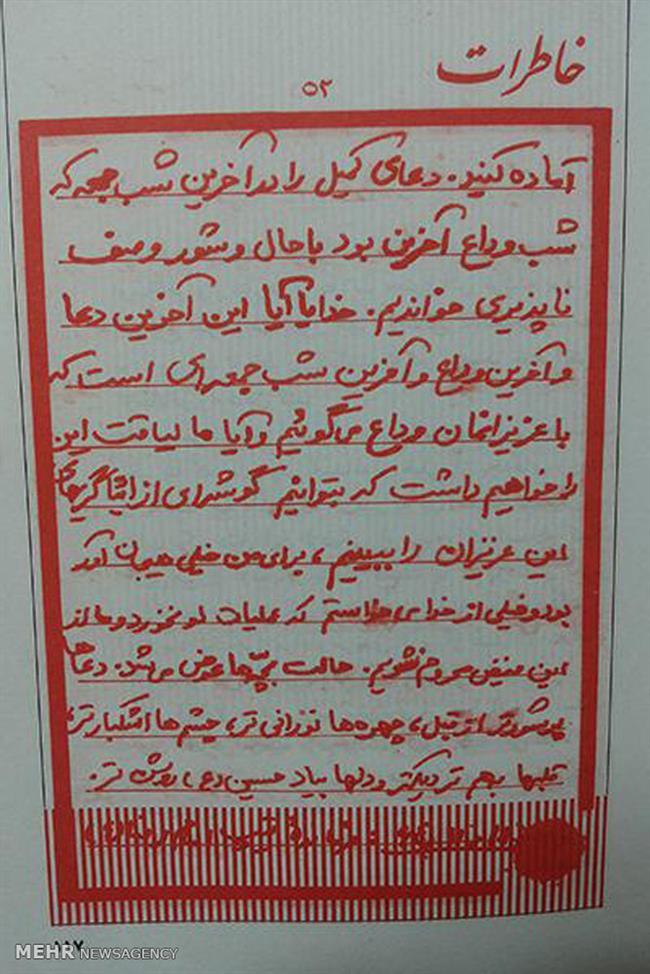 خاطرات
۵۲
آماده کنید. دعای کمیل را در آخرین شب جمعه که
شب وداع آخرین بود با حال و شور وصف
ناپذیری خواندیم. خدایا آیا این آخرین دعا
و آخرین وداع و آخرین شب جمعه ای است که
با عزیزانمان وداع می گوئیم و آیا ما لیاقت این
را خواهیم داشت که بتوانیم گوشه ای از ایثارگریهای
این عزیزان را ببینیم، برای من خیلی هیجان آور
بود و خیلی از خدا می خواستم که عملیات لو نخورد و ما از
این فیض محروم نشویم. حالت بچّه ها عوض می شد. دعاها
پرشورتر از قبل، چهره ها نورانی تر، چشم ها اشکبارتر،
قلبها بهم نزدیکتر و دلها بیاد حسین (ع) روشن تر.
MEHR NEWSAGENCY